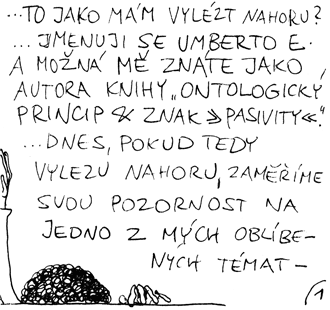 ...TO JAKO MÁM VYLÉZT NAHORU?
...JMENUJI SE UMBERTO E.
A MOŽNÁ MĚ ZNÁTE JAKO
AUTORA KNIHY „ONTOLOGICKÝ
PRINCIP & ZNAK »PASIVITY«."
...DNES, POKUD TEDY
VYLEZU NAHORU, ZAMĚŘÍME
SVOU POZORNOST NA
JEDNO Z MÝCH OBLÍBE–
NÝCH TÉMAT –
1